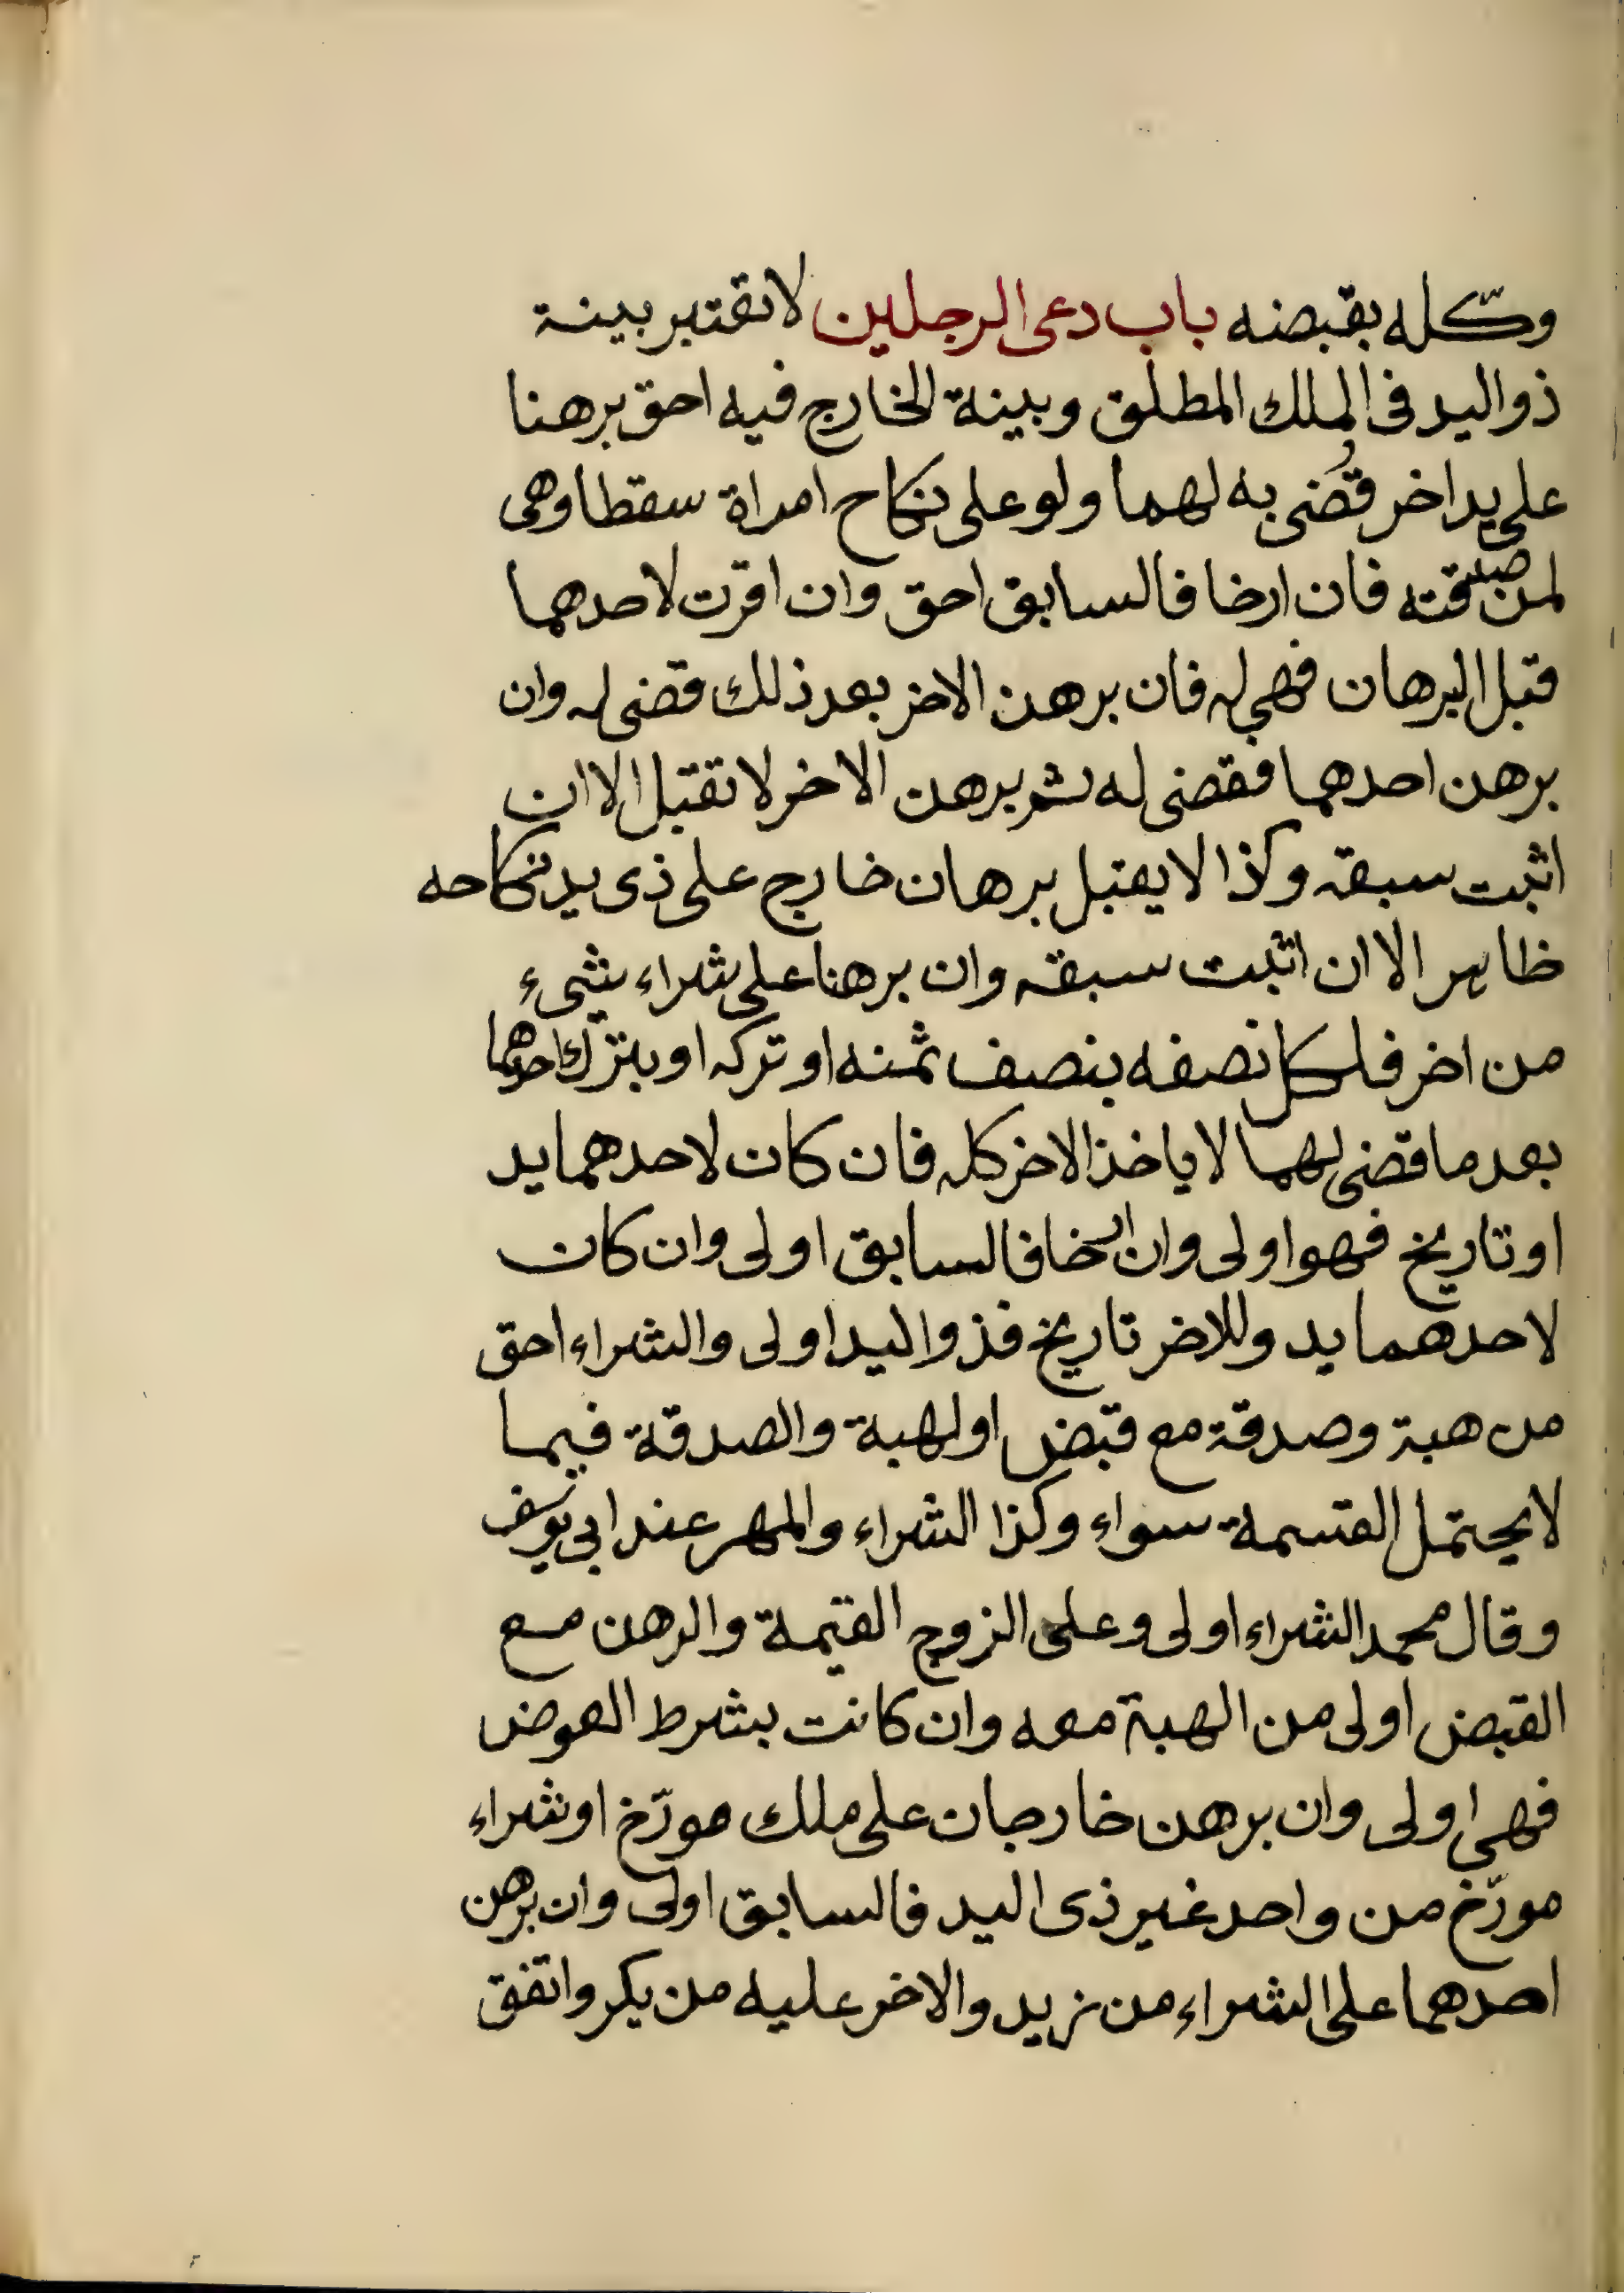 وكّله بقبضه باب دعى الرجلين لا تعتبر بينة
ذو اليد فى الملك المطلق وبينة الخارج فيه احق برهنا
على يد اخر قُضى به لهما ولو على نكاح امراة سقطا وهى
لمن صدقته فان ارخا فالسابق احق وان اقرت لاحدهما
قبل البرهان فهى له فان برهن الاخر بعد ذلك قضى له وان
برهن احدهما فقضى له ثم برهن الاخر لا تقبل الا ان
اثبت سبقه وكذا لا يقبل برهان خارج على ذى يد نكاحه
ظاهر الا ان اثبت سبقه وان برهنا على شراء شىء
من اخر فلكل نصفه بنصف ثمنه او تركه او بترك احدهما
بعد ما قضى لهما لا ياخذ الاخر كله فان كان لاحدهما يد
او تاريخ فهو اولى وان ارخا فالسابق اولى وان كان
لاحدهما يد وللاخر تاريخ فذو اليد اولى والشراء احق
من هبة وصدقة مع قبض اولهبة والصدقة فيما
لا يحتمل القسمة سواء وكذا الشراء والمهر عند ابى يوسف
وقال محمد الشراء اولى وعلى الزوج القيمة والرهن مع
القبض اولى من الهبة معه وان كانت بشرط العوض
فهى اولى وان برهن خارجان على ملك مورّخ او شراء
مورّخ من واحد غير ذى اليد فالسابق اولى وان برهن
احدهما على الشراء من زيد والاخر عليه من بكر واتفق